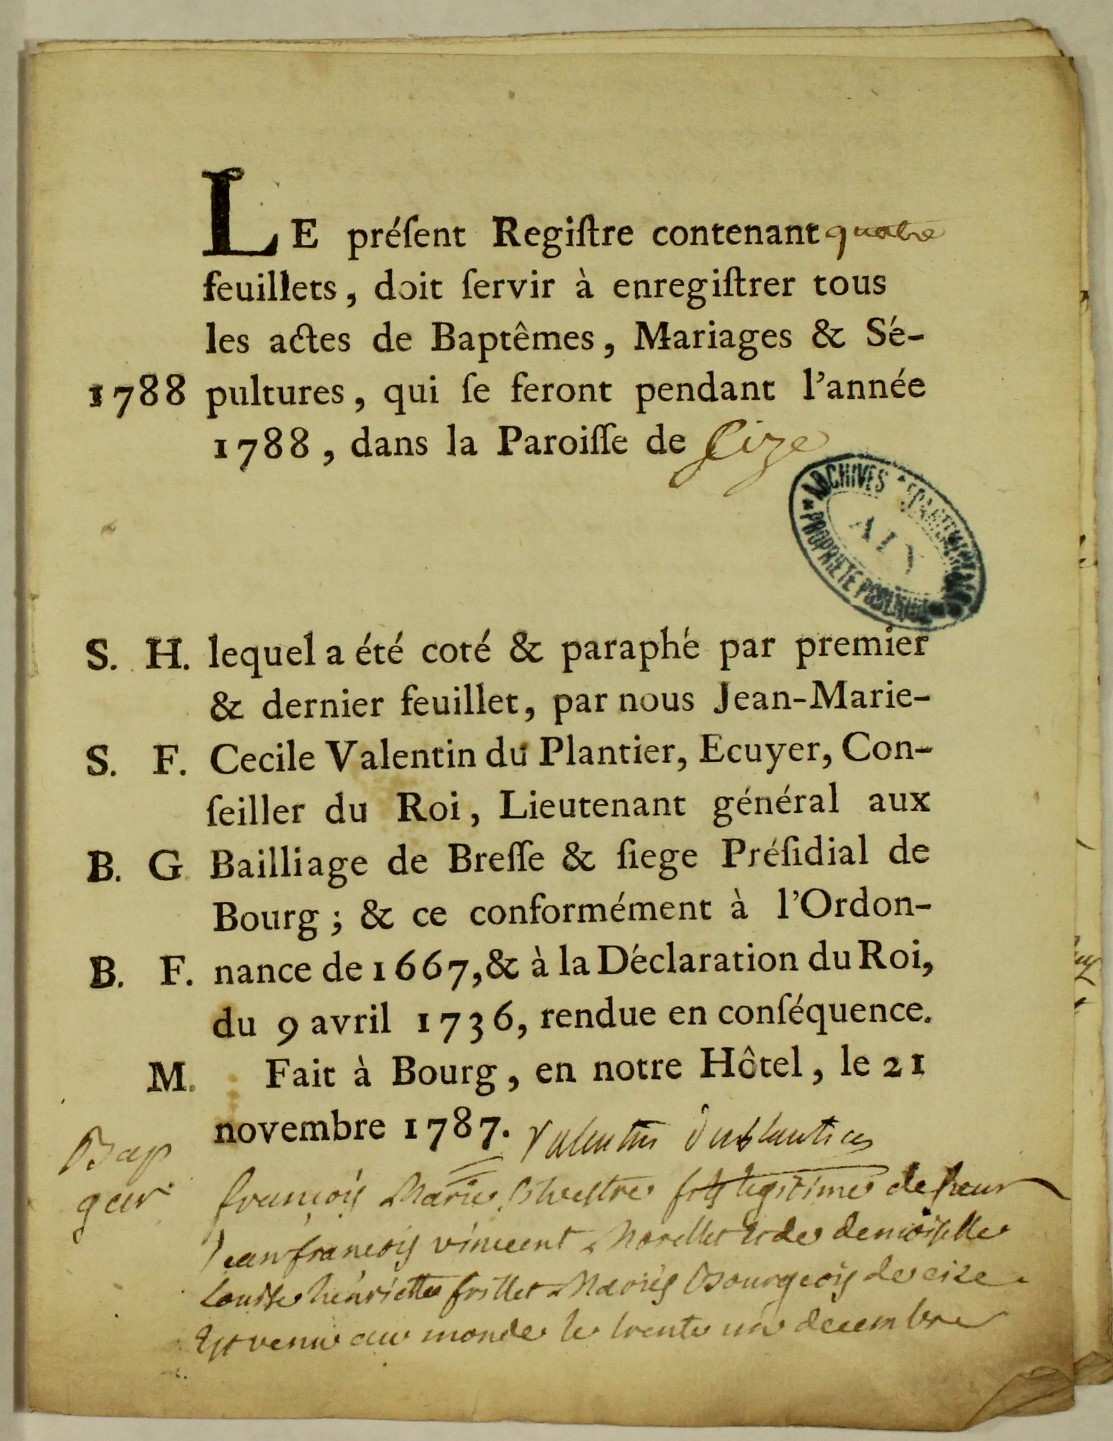 LE préſent Regiſtre contenant quatre
feuillets, doit ſervir à enregiſtrer tous
les actes de Baptêmes, Mariages & Sé-
1788 pultures, qui ſe feront pendant l'année
1788, dans la Paroiſſe de Cize
ARCHIVES DÉPARTEMENTALES
AIN
PROPRIÉTÉ PUBLIQUE
S. H. lequel a été coté & paraphé par premier
& dernier feuillet, par nous Jean-Marie-
S. F. Cecile Valentin du Plantier, Ecuyer, Con-
ſeiller du Roi, Lieutenant général aux
B. G. Bailliage de Breſſe & ſiege Préſidial de
Bourg; & ce conformément à l'Ordon-
B. F. nance de 1667, & à la Déclaration du Roi,
du 9 avril 1736, rendue en conſéquence.
M. Fait à Bourg, en notre Hôtel, le 21
novembre 1787. Valentin duplantier
Bap
gar françois Marie Silvestre fils legitime de sieur
Jean françois vincent Morellet et de demoiselle
Louise henriette frillet Mariés Bourgeois de cize
Est venu au monde le trente un decembre